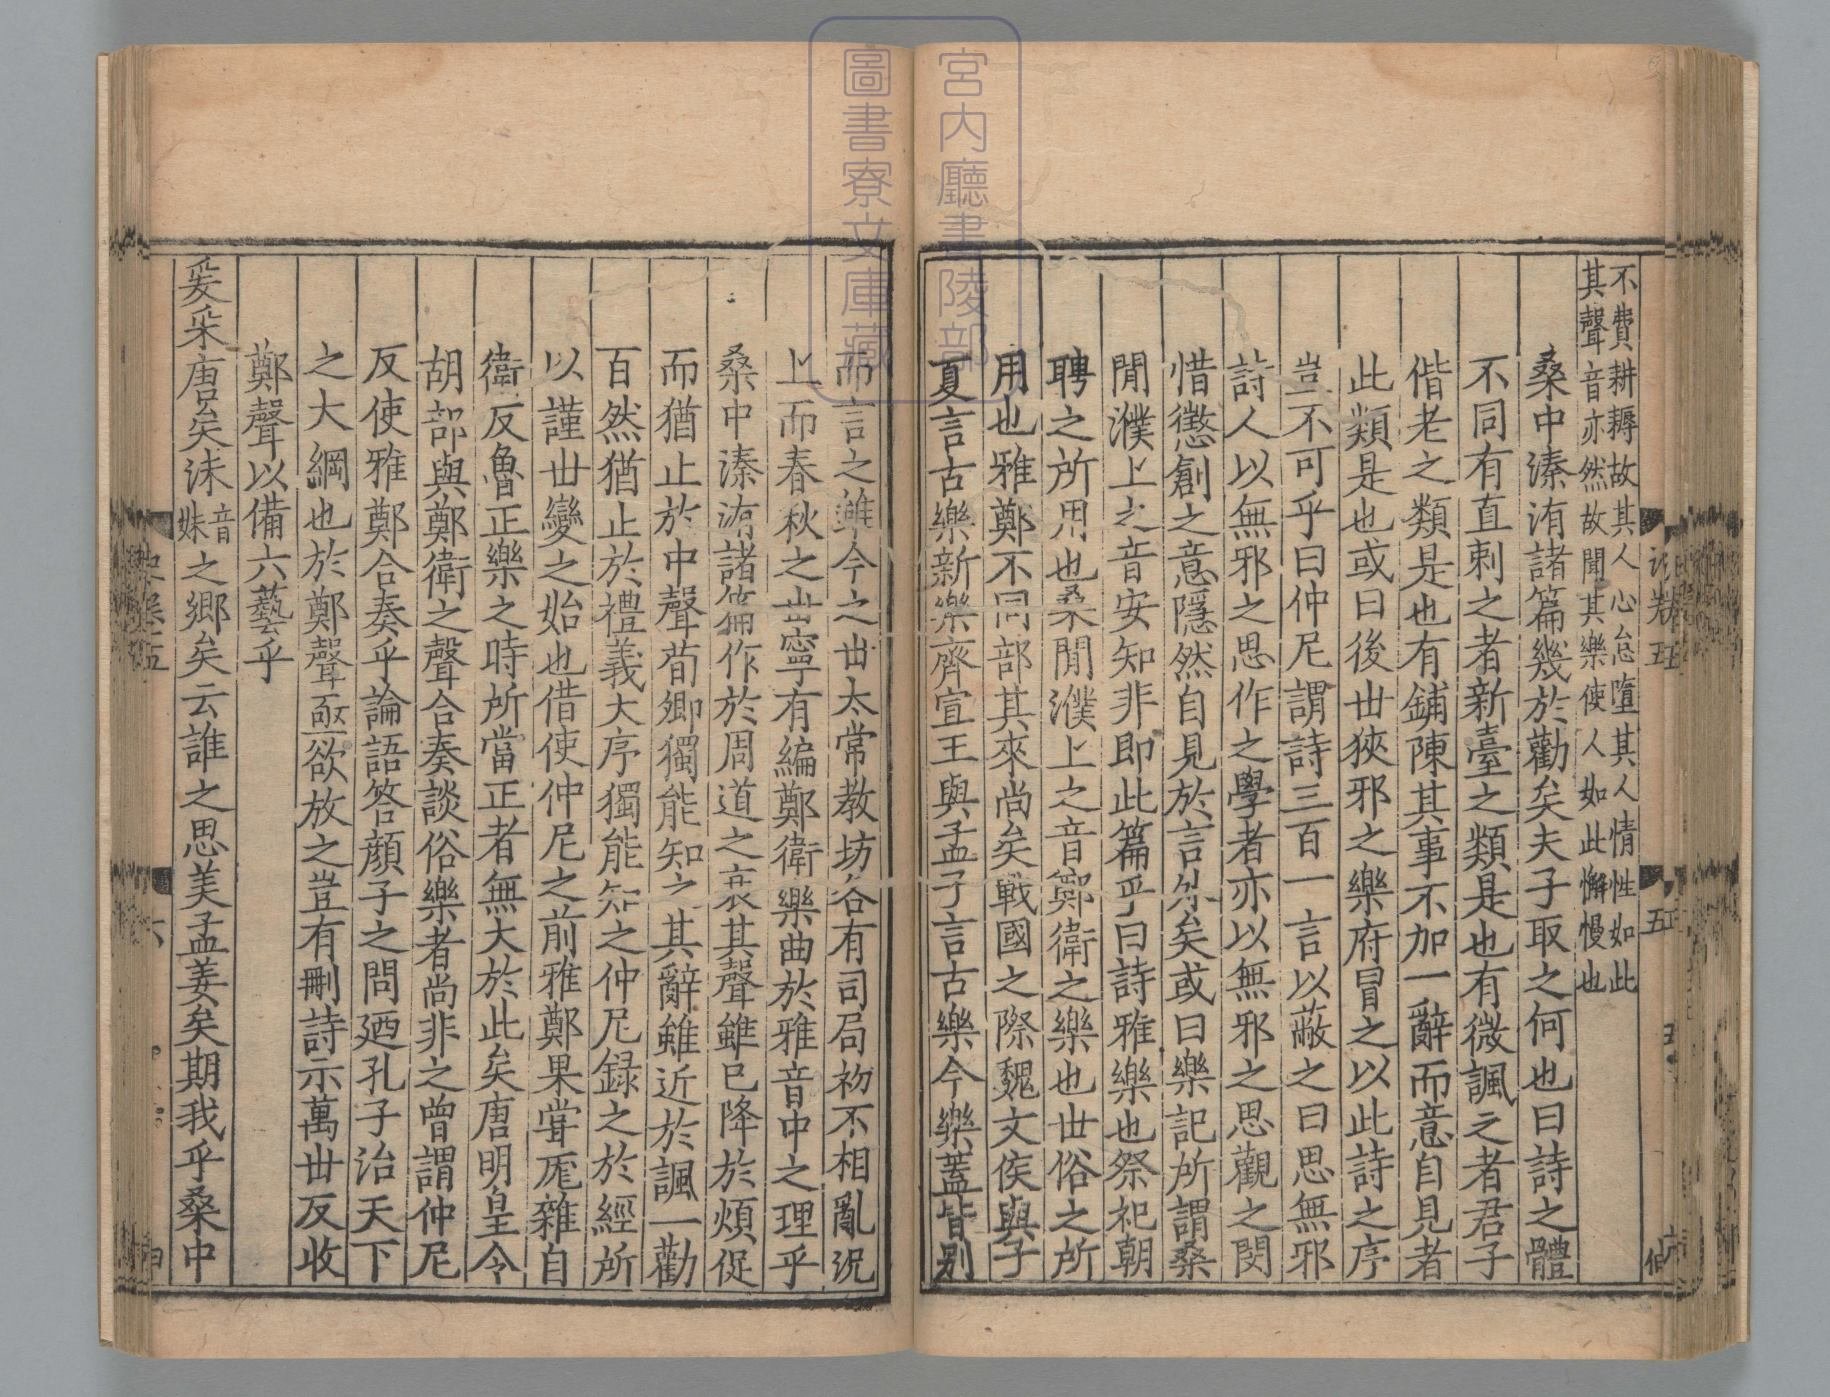 不費耕耨故其人心怠墮其人情性如此
其聲音亦然故聞其樂使人如此懈慢也
桑中溱洧諸篇幾於勸矣夫子取之何也曰詩之體
不同有直刺之者新臺之類是也有微諷之者君子
偕老之類是也有鋪陳其事不加一辭而意自見者
此類是也或曰後丗狹邪之樂府冒之以此詩之序
豈不可乎曰仲尼謂詩三百一言以蔽之曰思無邪
詩人以無邪之思作之學者亦以無邪之思觀之閔
惜懲創之意隱然自見於言外矣或曰樂記所謂桑
閒濮上之音安知非即此篇乎曰詩雅樂也祭祀朝
聘之所用也桑閒濮上之音鄭衛之樂也世俗之所
用也雅鄭不同部其來尚矣戰國之際魏文侯與子
夏言古樂新樂齊宣王與孟子言古樂今樂蓋皆別
而言之雖今之丗太常教坊各有司局初不相亂況
上而春秋之丗寧有編鄭衛樂曲於雅音中之理乎
桑中溱洧諸篇作於周道之衰其聲雖已降於煩促
而猶止於中聲荀卿獨能知之其辭雖近於諷一勸
百然猶止於禮義大序獨能知之仲尼録之於經所
以謹丗變之始也借使仲尼之前雅鄭果嘗厖雜自
衛反魯正樂之時所當正者無大於此矣唐明皇令
胡部與鄭衛之聲合奏談俗樂者尚非之曾謂仲尼
反使雅鄭合奏乎論語答顔子之問廼孔子治天下
之大綱也於鄭聲亟欲放之豈有刪詩示萬丗反收
鄭聲以備六藝乎
爰采唐矣沬音妹之鄉矣云誰之思美孟姜矣期我乎桑中
宮内廳書陵部
圖書寮文庫藏